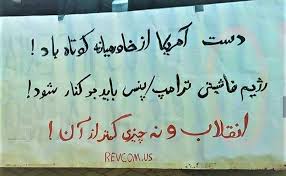 دست آمریکا از خاورمیانه کوتاه باد!
رژیم فاشیستی ترامپ/پنس باید برکنار شود!
انقلاب و نه چیزی کمتر از آن!
REVCOM.US